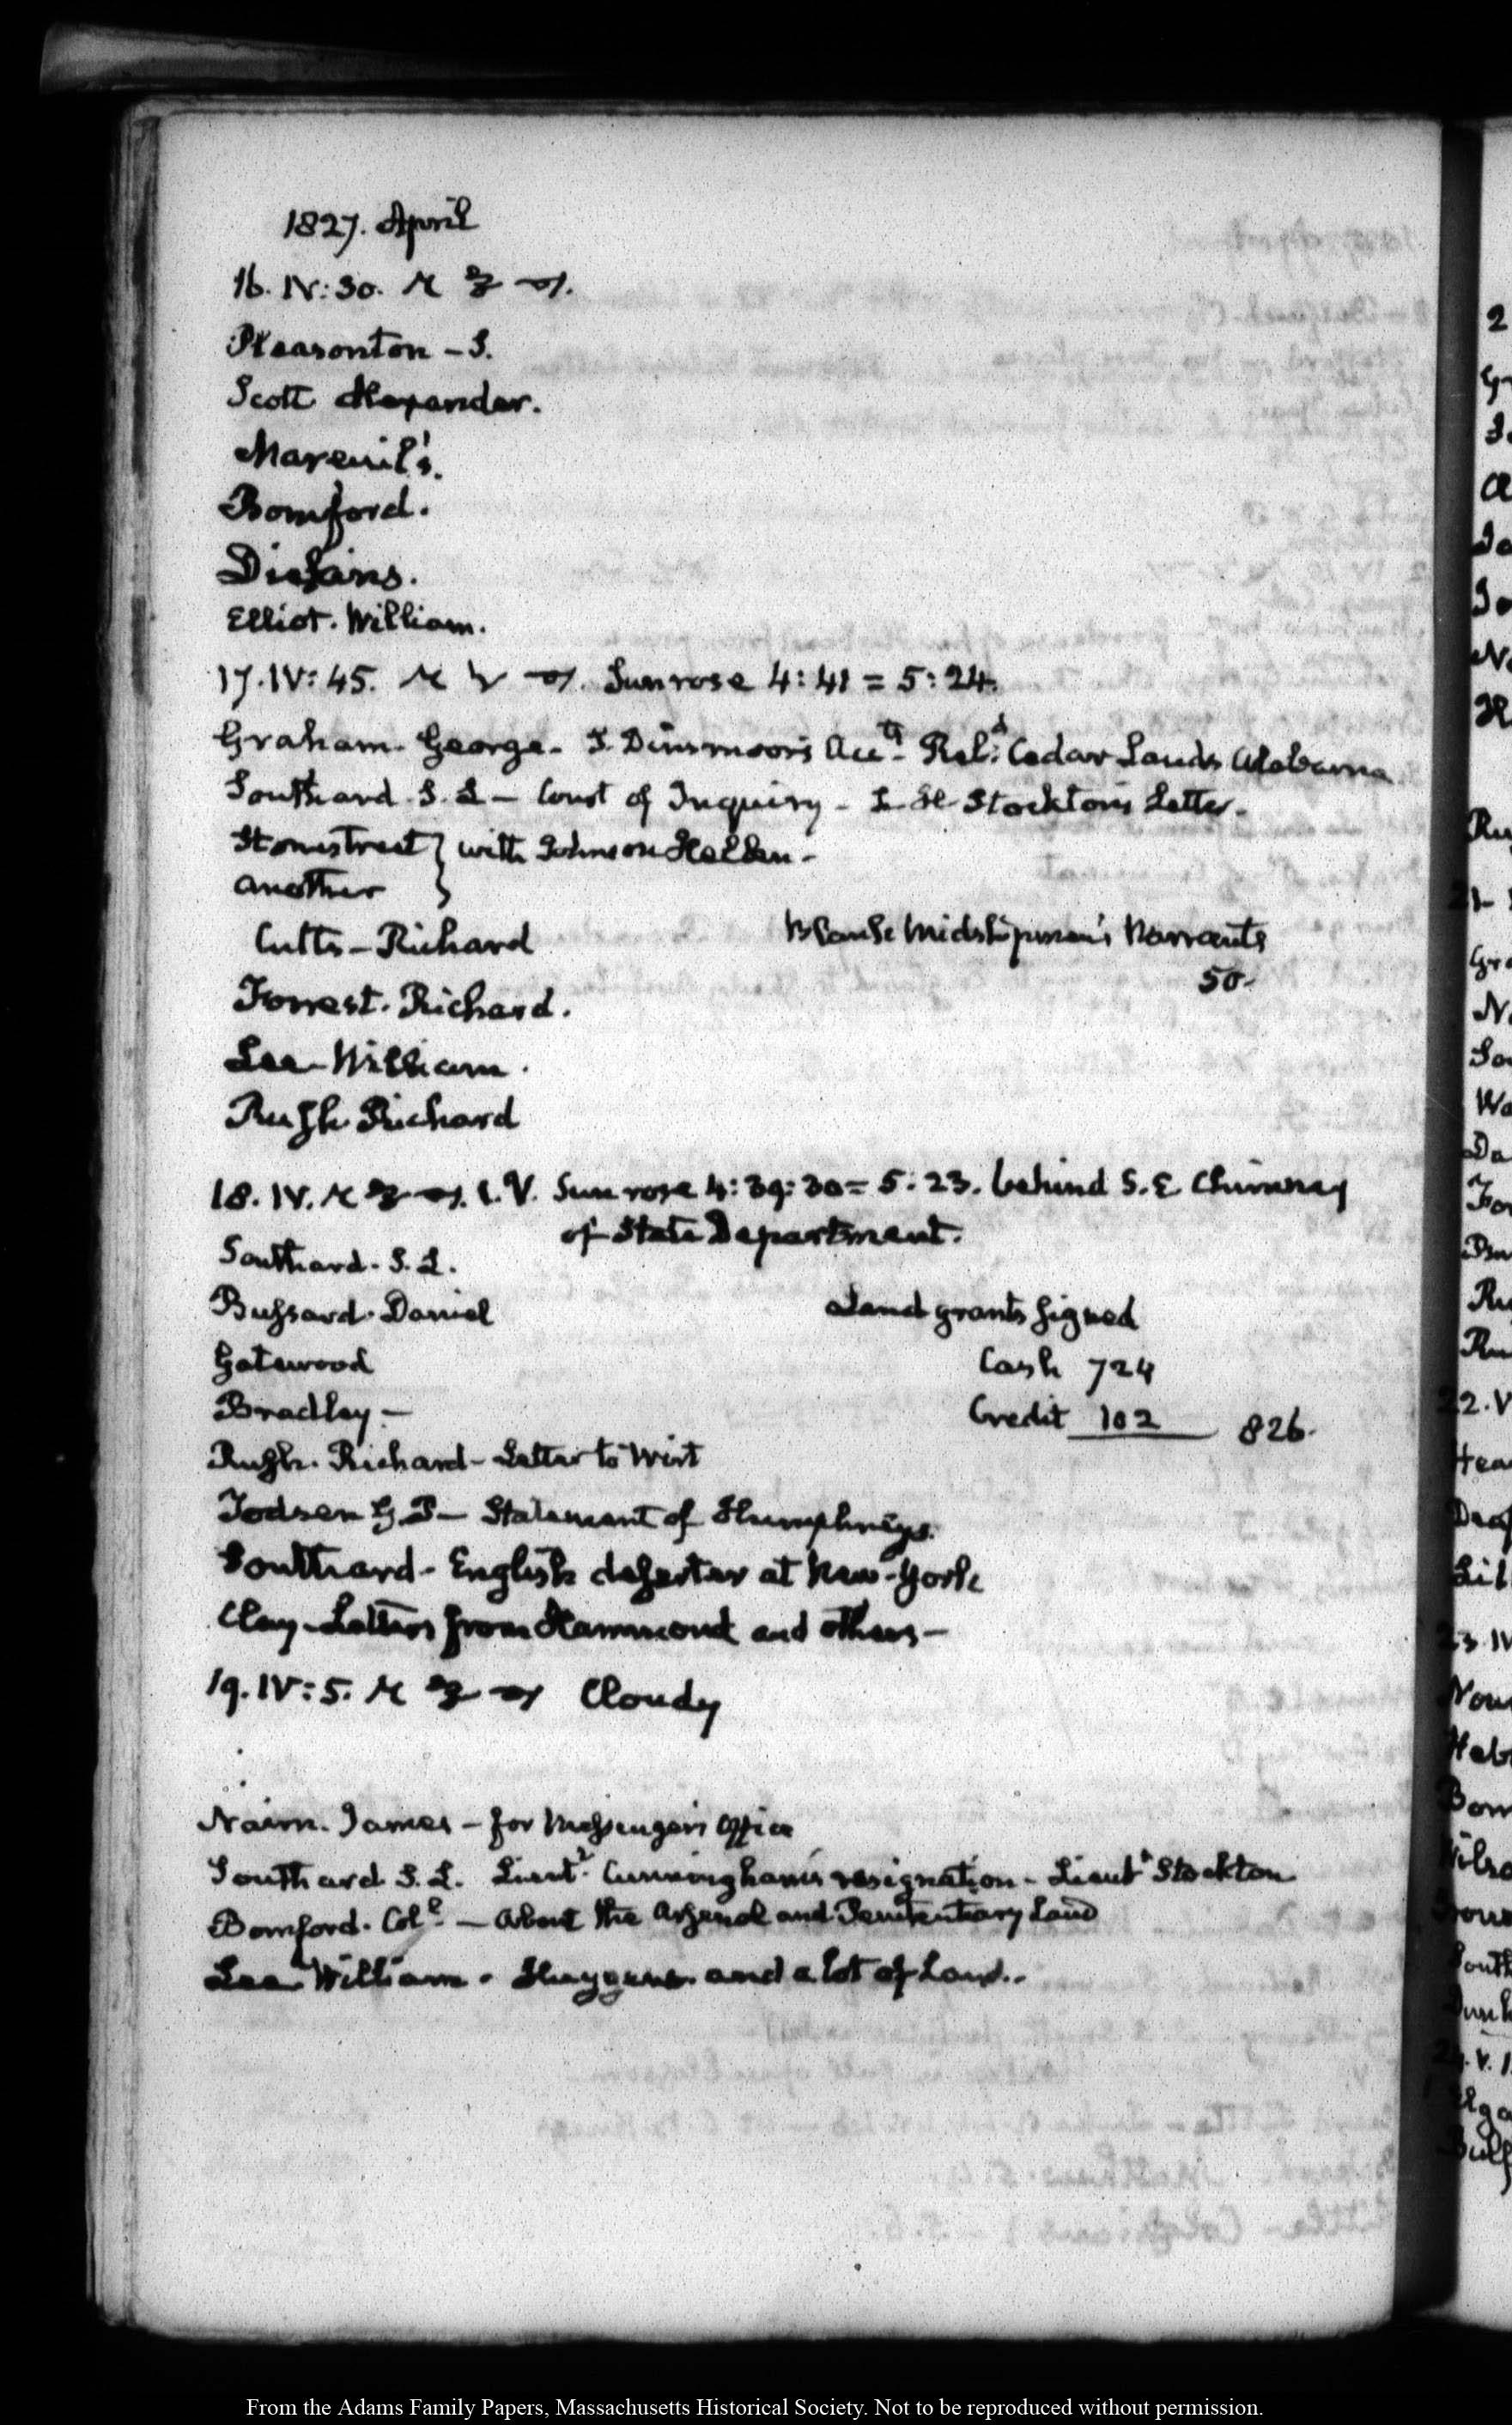 1827. April
16. IV:30.
Pleasonton - S.
Scott Alexander.
Mareuil's.
Bomford.
Dickins.
Elliot. William.
17. IV: 45. Sun rose 4: 41 = 5: 24.
Graham. George - Dinsmoor's Acct. Cedar Lands Alabama
Southard. S. L - Court of Inquiry - Stockton's Letter.
Stonestreet } with Johnson Hellen -
another }
Cutts - Richard Blank Midshipmen's Warrants
50.
Forrest. Richard.
Lee - William.
Rush Richard
18. IV. V. Sun rose 4: 39: 30 = 5: 23. behind S. E Chimney
of State Department.
Southard. S. L.
Bussard. Daniel Land grants signed
Gatewood Cash 724
Bradley - Credit 102 826.
Rush. Richard - Letter to Wirt
Todsen G P - Statement of Humphreys.
Southard - English deserter at New-York
Clay - Letters from Hammond and others -
19. IV: 5. Cloudy
Nairn. James - for Messenger's Office
Southard S. L. Lieutt. Cunningham's resignation - Lieutt Stockton
Bomford. Coll. - About the Arsenal and Penitentiary Land
Lee William. and a lot of Land.
From the Adams Family Papers, Massachusetts Historical Society. Not to be reproduced without permission.